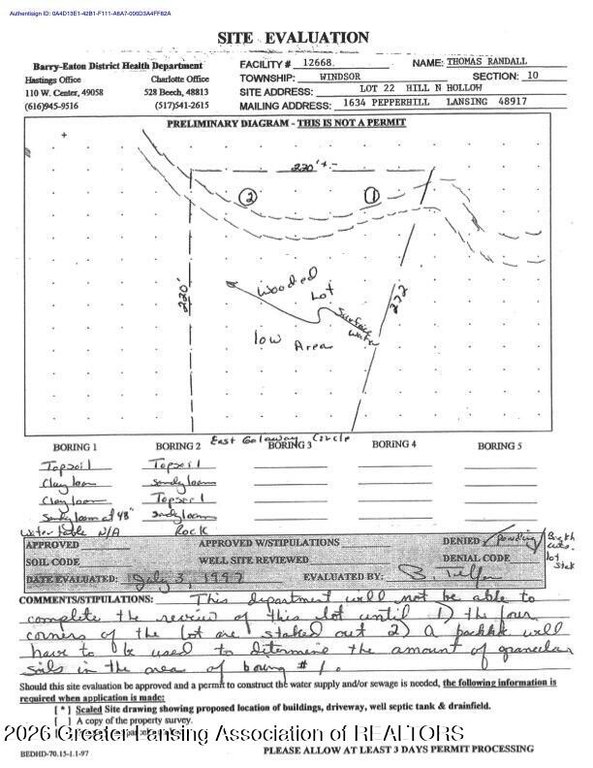 Authentisign ID: 0A4D13E1-42B1-F111-A8A7-000D3A4FF62A
SITE EVALUATION
Barry-Eaton District Health Department
Hastings Office Charlotte Office
110 W. Center, 49058 528 Beech, 48813
(616)945-9516 (517)541-2615
FACILITY # 12668 NAME: THOMAS RANDALL
TOWNSHIP: WINDSOR SECTION: 10
SITE ADDRESS: LOT 22 HILL N HOLLOW
MAILING ADDRESS: 1634 PEPPERHILL LANSING 48917
PRELIMINARY DIAGRAM - THIS IS NOT A PERMIT
220'+-
2 1
220'
Wooded
Lot
Surface
Water
272
low Area
East Galaway Circle
BORING 1 BORING 2 BORING 3 BORING 4 BORING 5
Topsoil Topsoil
Clay loam Sandy loam
Clay loam Topsoil
Sandy loam at 48" Sandy loam
Water table N/A Rock
APPROVED APPROVED W/STIPULATIONS DENIED (Pending)
SOIL CODE WELL SITE REVIEWED DENIAL CODE
lot
DATE EVALUATED: July 3, 1997 EVALUATED BY: B.
COMMENTS/STIPULATIONS: This department will not be able to
complete the review of this lot until 1) the four
corners of the lot are staked out 2) a backhoe will
have to be used to determine the amount of granular
soils in the area of boring #1.
Should this site evaluation be approved and a permit to construct the water supply and/or sewage is needed, the following information is
required when application is made:
[ * ] Scaled Site drawing showing proposed location of buildings, driveway, well septic tank & drainfield.
[ ] A copy of the property survey.
2026 Greater Lansing Association of REALTORS
BEDHD-70.15-1.1-97 PLEASE ALLOW AT LEAST 3 DAYS PERMIT PROCESSING